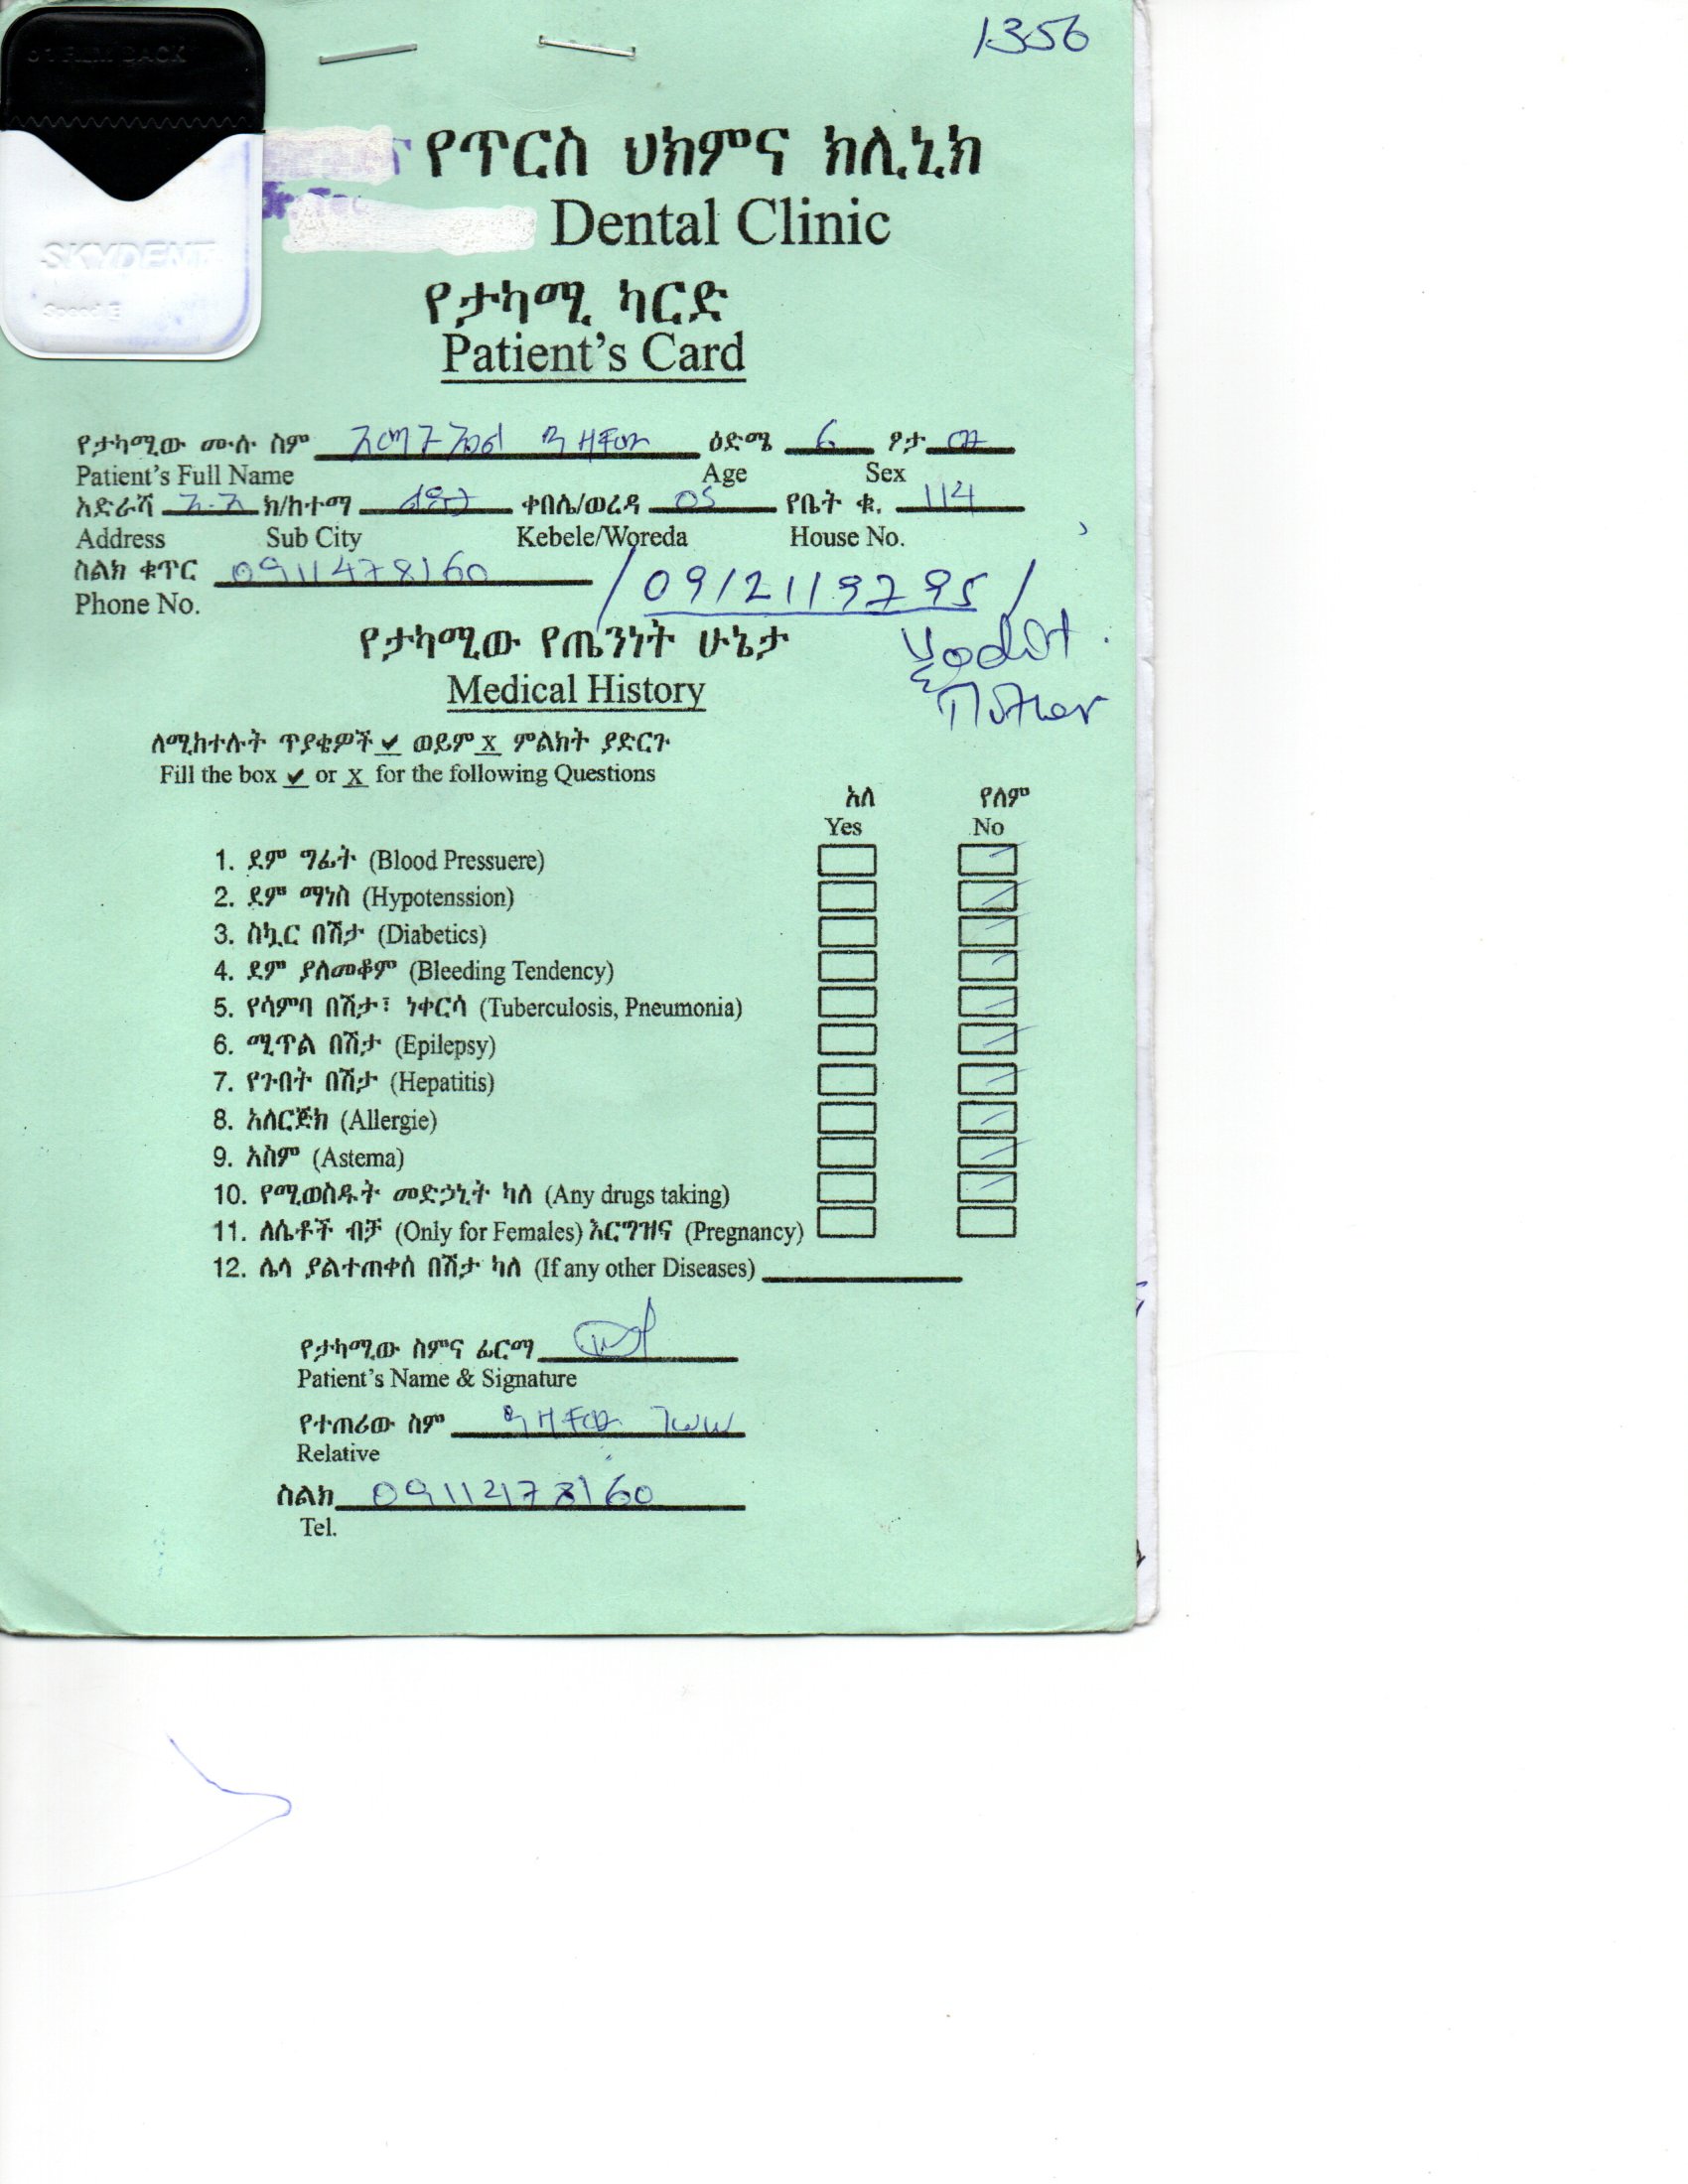 1356
SKYDENT
የጥርስ ህክምና ክሊኒክ
Dental Clinic
የታካሚ ካርድ
Patient's Card
የታካሚው ሙሉ ስም ዕድሜ 6 ፆታ ወ
Patient's Full Name Age Sex
አድራሻ አ.አ ክ/ከተማ ልደታ ቀበሌ/ወረዳ 05 የቤት ቁ. 114
Address Sub City Kebele/Woreda House No.
ስልክ ቁጥር 0911478160 / 0912119795 /
Phone No.
Yodit
Mother
የታካሚው የጤንነት ሁኔታ
Medical History
ለሚከተሉት ጥያቄዎች ✔ ወይም X ምልክት ያድርጉ
Fill the box ✔ or X for the following Questions
አለ የለም
Yes No
1. ደም ግፊት (Blood Pressuere)
2. ደም ማነስ (Hypotenssion)
3. ስኳር በሽታ (Diabetics)
4. ደም ያለመቆም (Bleeding Tendency)
5. የሳምባ በሽታ፣ ነቀርሳ (Tuberculosis, Pneumonia)
6. ሚጥል በሽታ (Epilepsy)
7. የጉበት በሽታ (Hepatitis)
8. አለርጅክ (Allergie)
9. አስም (Astema)
10. የሚወስዱት መድኃኒት ካለ (Any drugs taking)
11. ለሴቶች ብቻ (Only for Females) እርግዝና (Pregnancy)
12. ሌላ ያልተጠቀሰ በሽታ ካለ (If any other Diseases)
የታካሚው ስምና ፊርማ
Patient's Name & Signature
የተጠሪው ስም
Relative
ስልክ 0911478160
Tel.